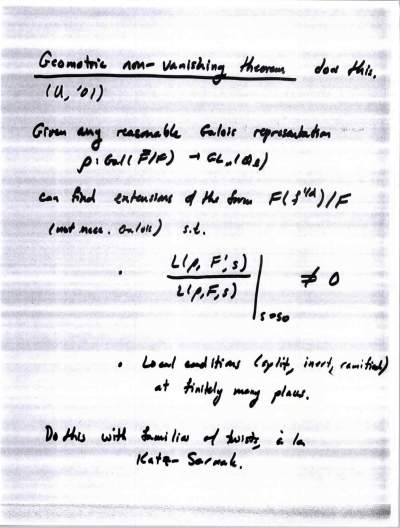 Geometric non-vanishing theorem does this.
(U, '01)
Given any reasonable Galois representation
ρ: Gal(F̄/F) → GLn(Q̄ℓ)
can find extensions of the form F(f^{1/d})/F
(not nec. Galois) s.t.
• L(ρ, F', s) / L(ρ, F, s) |_{s=s0} ≠ 0
• Local conditions (split, inert, ramified)
at finitely many places.
Do this with families of twists, à la
Katz-Sarnak.